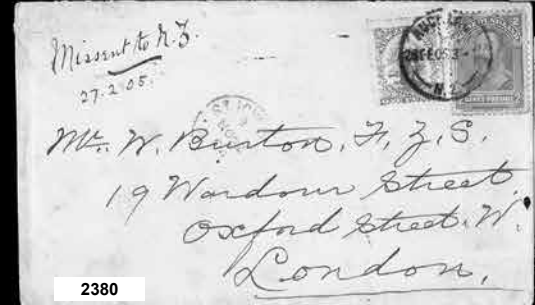 Missent to N.Z.
27.2.05.
N.Z.
Mr. W. Burton, F.Z.S.
19 Wardour Street,
Oxford Street. W.
London,
2380